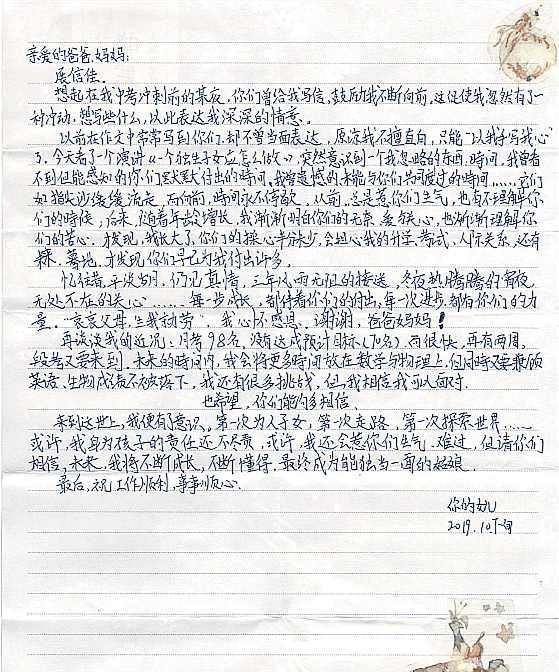 亲爱的爸爸、妈妈:
展信佳。
想起在我中考冲刺前的某夜,你们曾给我写信,鼓励我不断向前。这促使我忽然有了一
种冲动,想写些什么,以此表达我深深的情意。
以前在作文中常常写到你们,却不曾当面表达,原谅我不擅直白,只能“以我手写我心”
了。今天看了个演讲《一个独生子女应怎么做》,突然意识到一个我忽略的东西,时间,我曾看
不到但能感知的你们默默付出的时间,我曾遗憾的未能与你们共同度过的时间……它们
如指尖沙缓缓流走,而向前,时间永不停歇。从前,总是惹你们生气,也有不理解你
们的时候;后来,随着年龄增长,我渐渐明白你们的无奈、爱与关心,也渐渐理解你
们的苦心。才发现,我长大了,你们的操心半分未少,会担心我的升学、考试、人际关系,还有
蓦地,才发现你们早已为我付出许多。
忆往昔,平淡岁月,仍见真情,三年风雨无阻的接送,冬夜热腾腾的宵夜
无处不在的关心……每一步成长,都伴着你们的付出,每一次进步,都有你们的力
量。“哀哀父母,生我劬劳”,我心怀感恩。谢谢,爸爸妈妈!
再谈谈我的近况:月考98名,没有达成预计目标(70名)。而很快,再有两周,
段考又要来到。未来的时间内,我会将更多时间放在数学与物理上,但同时又要兼顾
英语、生物成绩不被落下,我还有很多挑战,但我相信我可以面对。
也希望,你们能够多相信。
来到这世上,我便有了意识。第一次为人子女,第一次走路,第一次探索世界……
或许,我身为孩子的责任还不尽责,或许,我还会惹你们生气、难过,但请你们
相信,未来,我将不断成长,不断懂得,最终成为能独当一面的姑娘。
最后,祝工作顺利,事事顺心。
你的女儿
2019.10下旬